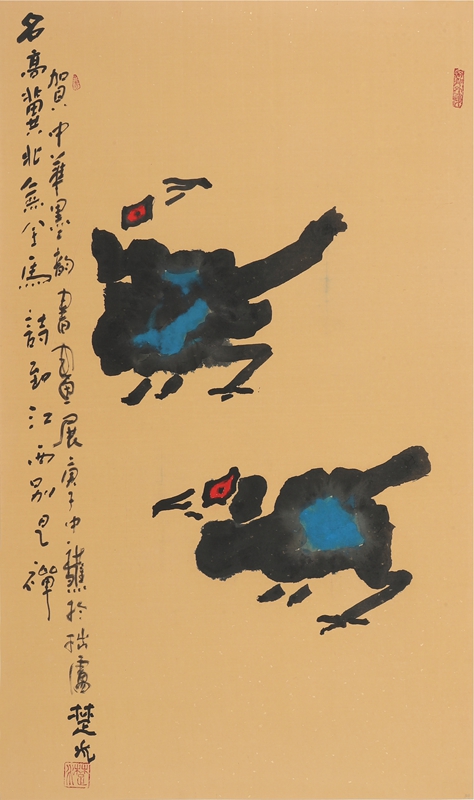 名高冀北無全馬詩到江西別是禪
賀中華墨韵書畫展庚子中龝於拙廬楚